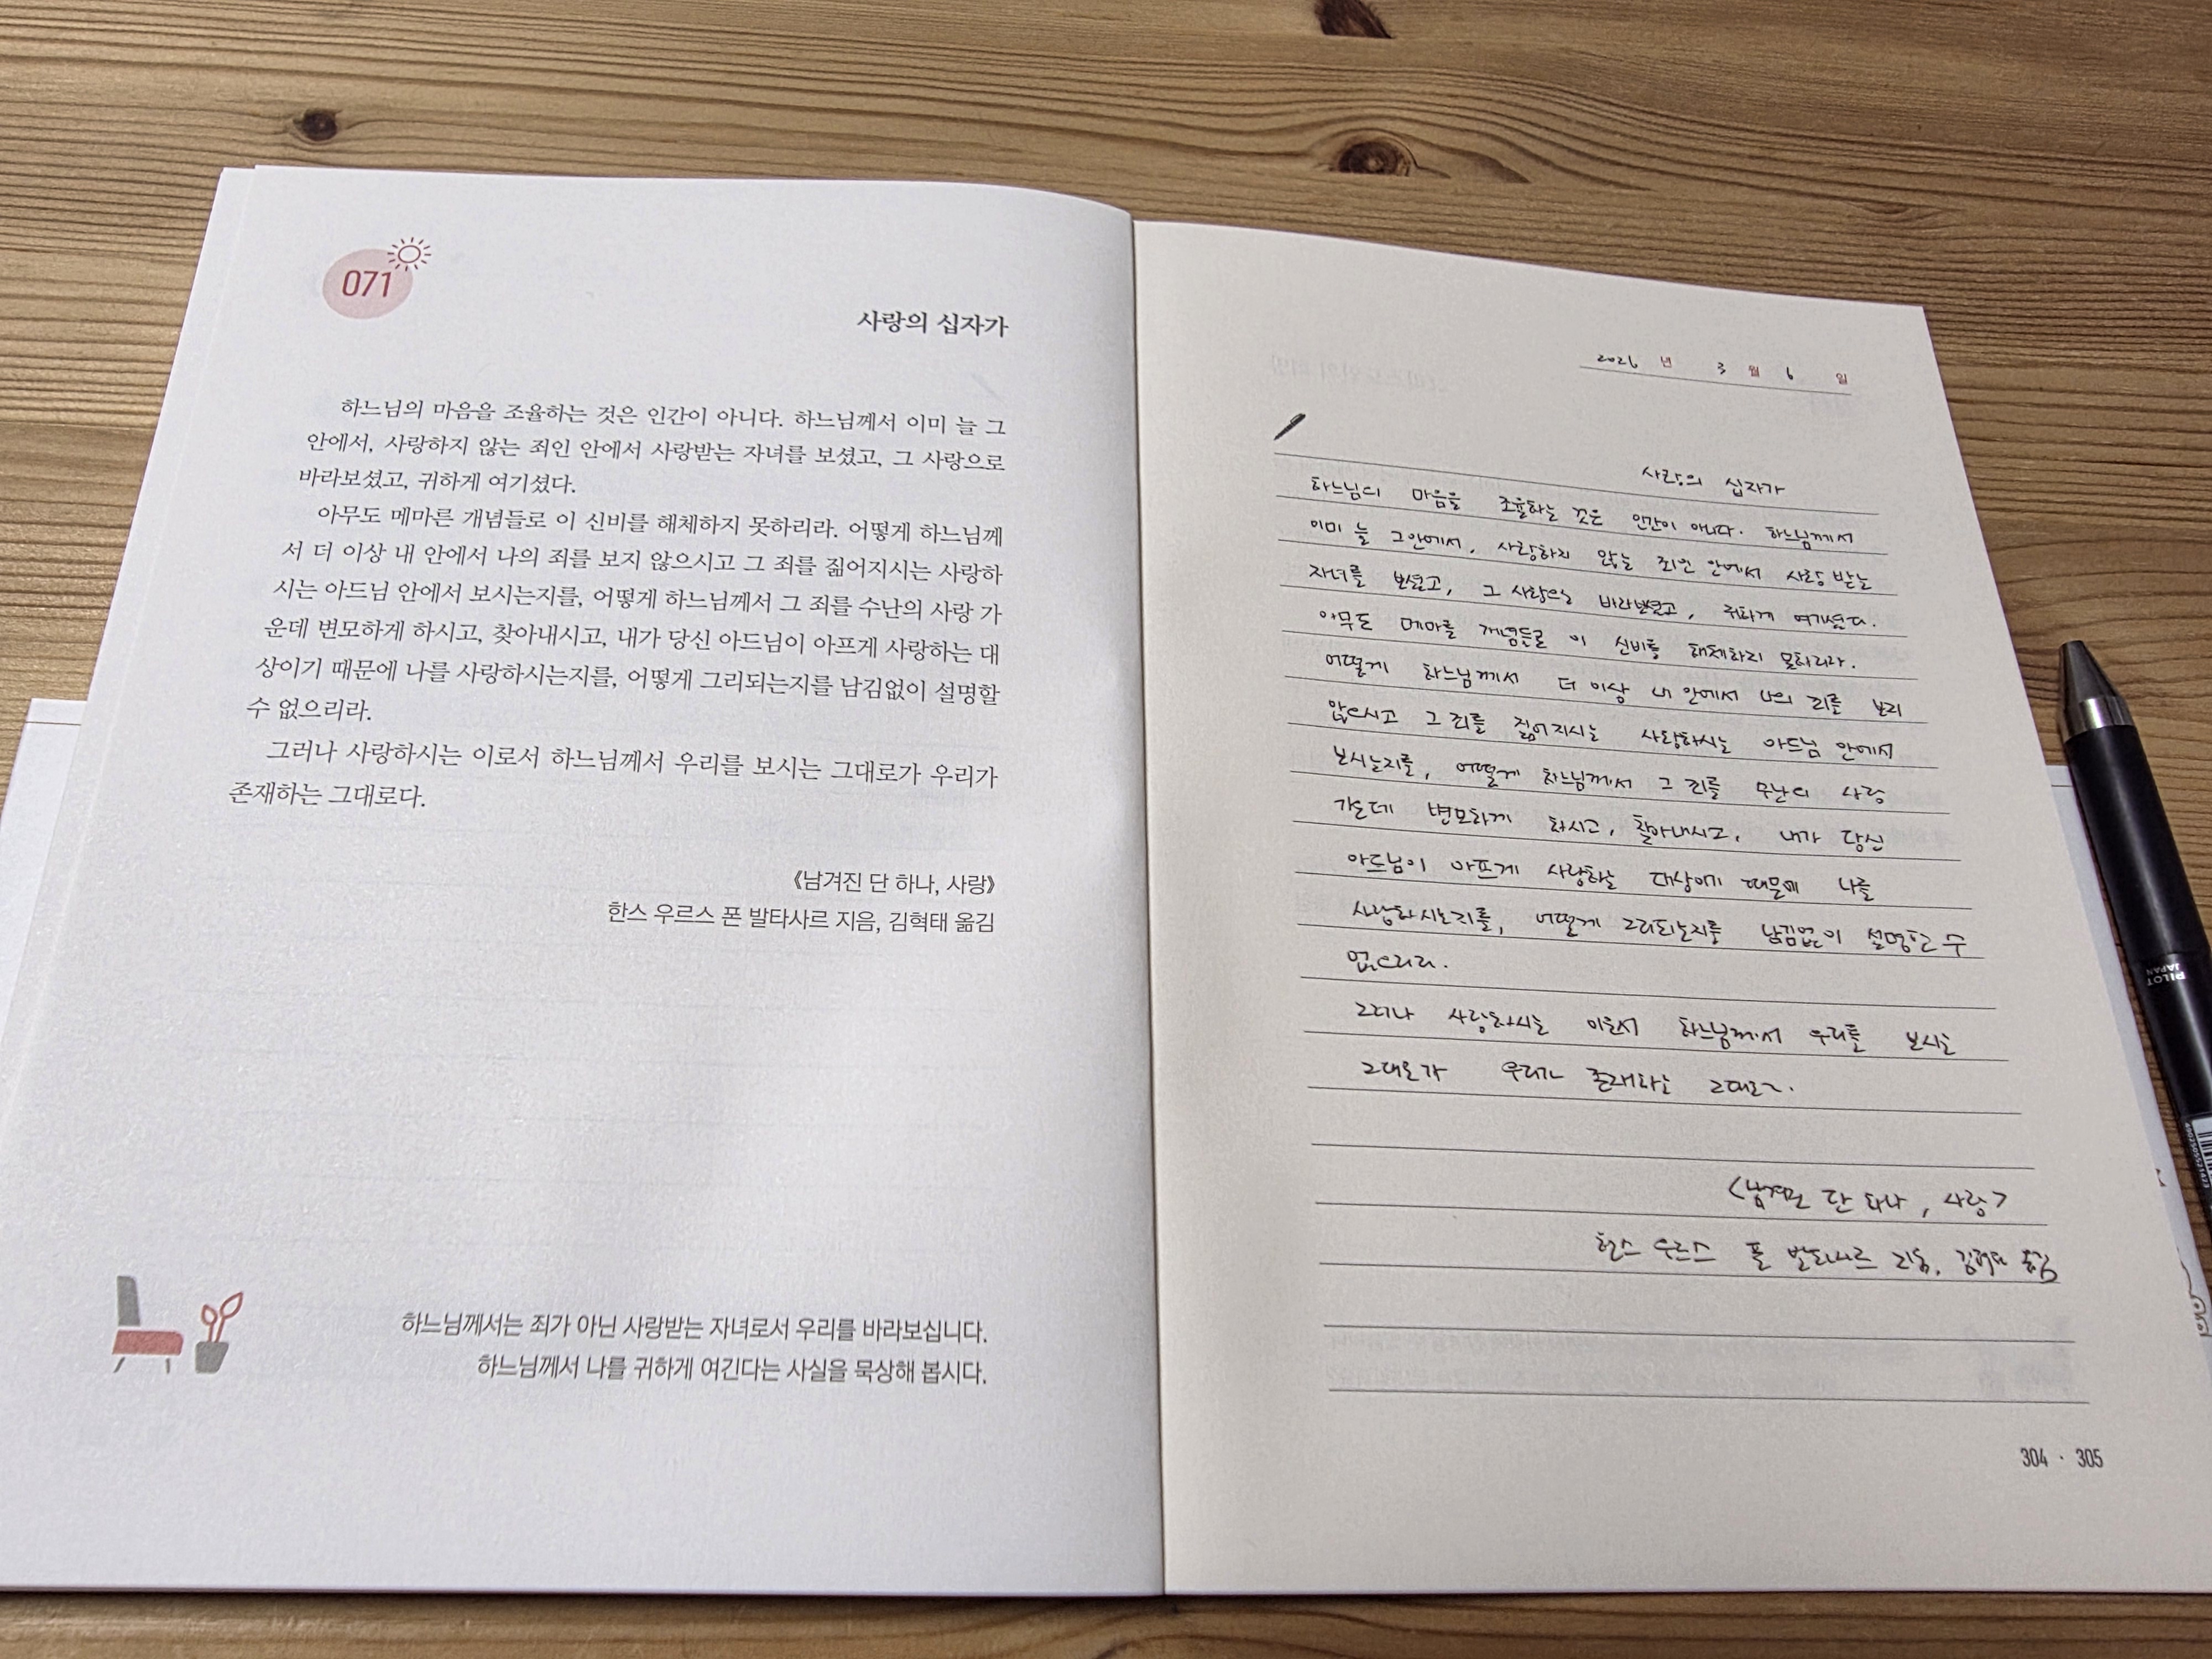 071
사랑의 십자가
하느님의 마음을 조율하는 것은 인간이 아니다. 하느님께서 이미 늘 그
안에서, 사랑하지 않는 죄인 안에서 사랑받는 자녀를 보셨고, 그 사랑으로
바라보셨고, 귀하게 여기셨다.
아무도 메마른 개념들로 이 신비를 해체하지 못하리라. 어떻게 하느님께
서 더 이상 내 안에서 나의 죄를 보지 않으시고 그 죄를 짊어지시는 사랑하
시는 아드님 안에서 보시는지를, 어떻게 하느님께서 그 죄를 수난의 사랑 가
운데 변모하게 하시고, 찾아내시고, 내가 당신 아드님이 아프게 사랑하는 대
상이기 때문에 나를 사랑하시는지를, 어떻게 그리되는지를 남김없이 설명할
수 없으리라.
그러나 사랑하시는 이로서 하느님께서 우리를 보시는 그대로가 우리가
존재하는 그대로다.
《남겨진 단 하나, 사랑》
한스 우르스 폰 발타사르 지음, 김혁태 옮김
하느님께서는 죄가 아닌 사랑받는 자녀로서 우리를 바라보십니다.
하느님께서 나를 귀하게 여긴다는 사실을 묵상해 봅시다.
2026 년 3 월 6 일
사랑의 십자가
하느님의 마음을 조율하는 것은 인간이 아니다. 하느님께서
이미 늘 그안에서, 사랑하지 않는 죄인 안에서 사랑 받는
자녀를 보셨고, 그 사랑으로 바라보셨고, 귀하게 여기셨다.
아무도 메마른 개념들로 이 신비를 해체하지 못하리라.
어떻게 하느님께서 더 이상 내 안에서 나의 죄를 보지
않으시고 그 죄를 짊어지시는 사랑하시는 아드님 안에서
보시는지를, 어떻게 하느님께서 그 죄를 수난의 사랑
가운데 변모하게 하시고, 찾아내시고, 내가 당신
아드님이 아프게 사랑하는 대상이기 때문에 나를
사랑하시는지를, 어떻게 그리되는지를 남김없이 설명할 수
없으리라.
그러나 사랑하시는 이로서 하느님께서 우리를 보시는
그대로가 우리가 존재하는 그대로다.
<남겨진 단 하나, 사랑>
한스 우르스 폰 발타사르 지음, 김혁태 옮김
304 · 305
PILOT
JAPAN